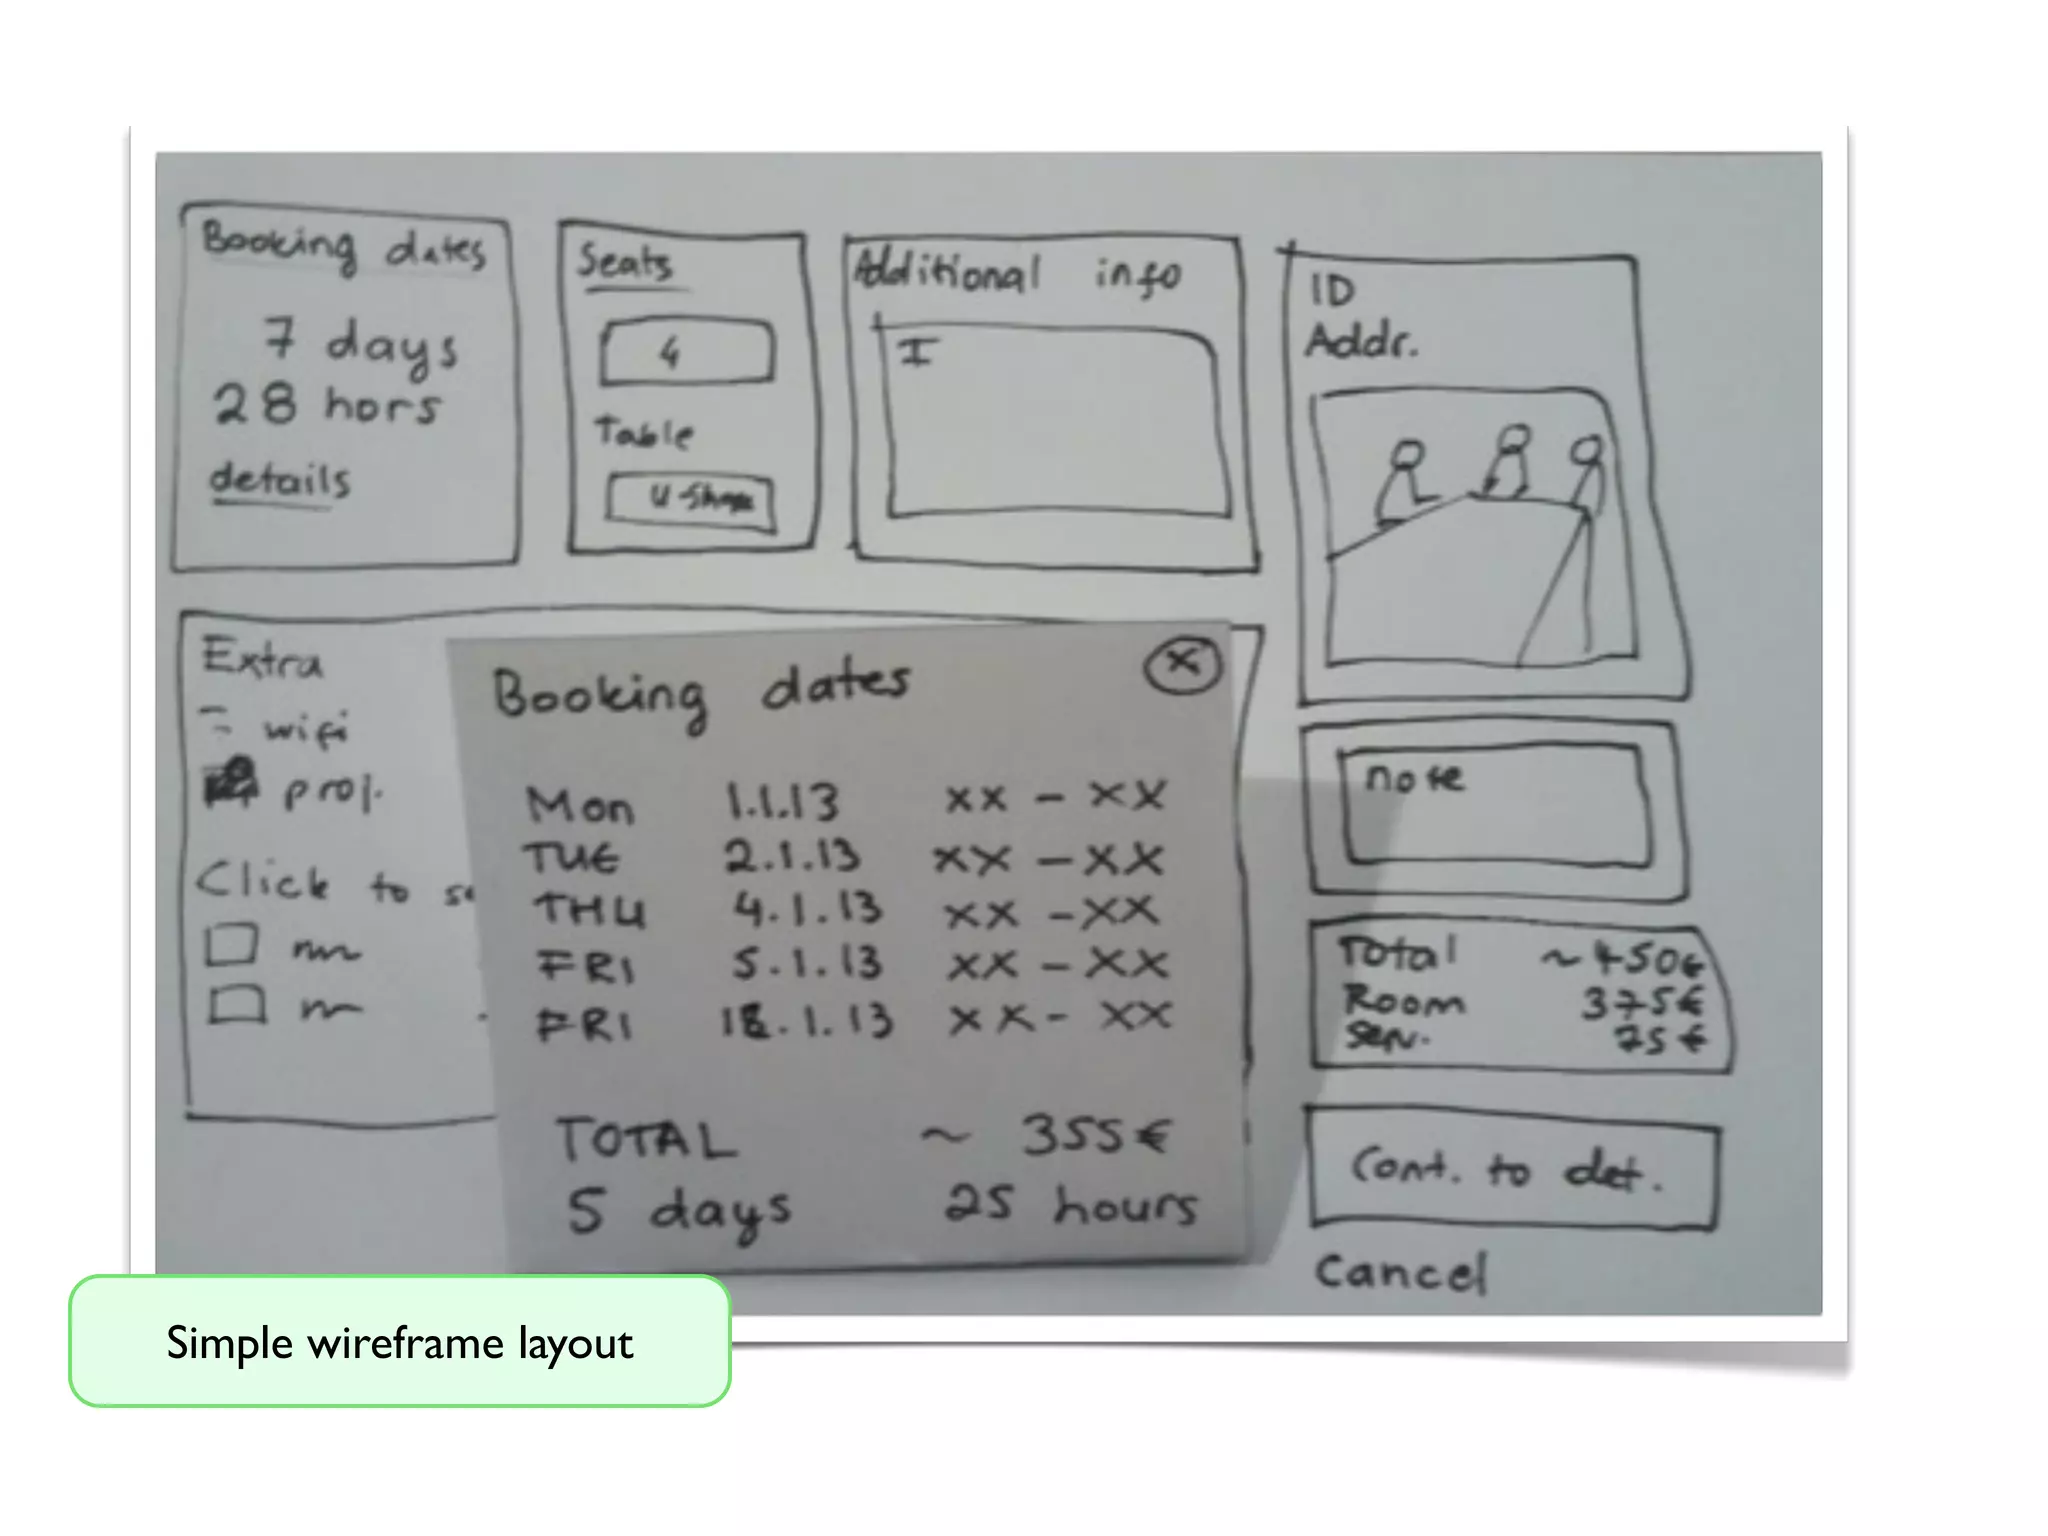 Booking dates
7 days
28 hors
details
Seats
4
Table
U-Shape
Additional info
I
ID
Addr.
Extra
wifi
proj.
Click to se
Booking dates X
Mon 1.1.13 xx - xx
TUE 2.1.13 xx - xx
THU 4.1.13 xx - xx
FRI 5.1.13 xx - xx
FRI .1.13 xx - xx
TOTAL ~ 355€
5 days 25 hours
note
Total ~450€
Room 375€
Serv. 75€
Cont. to det.
Cancel
Simple wireframe layout